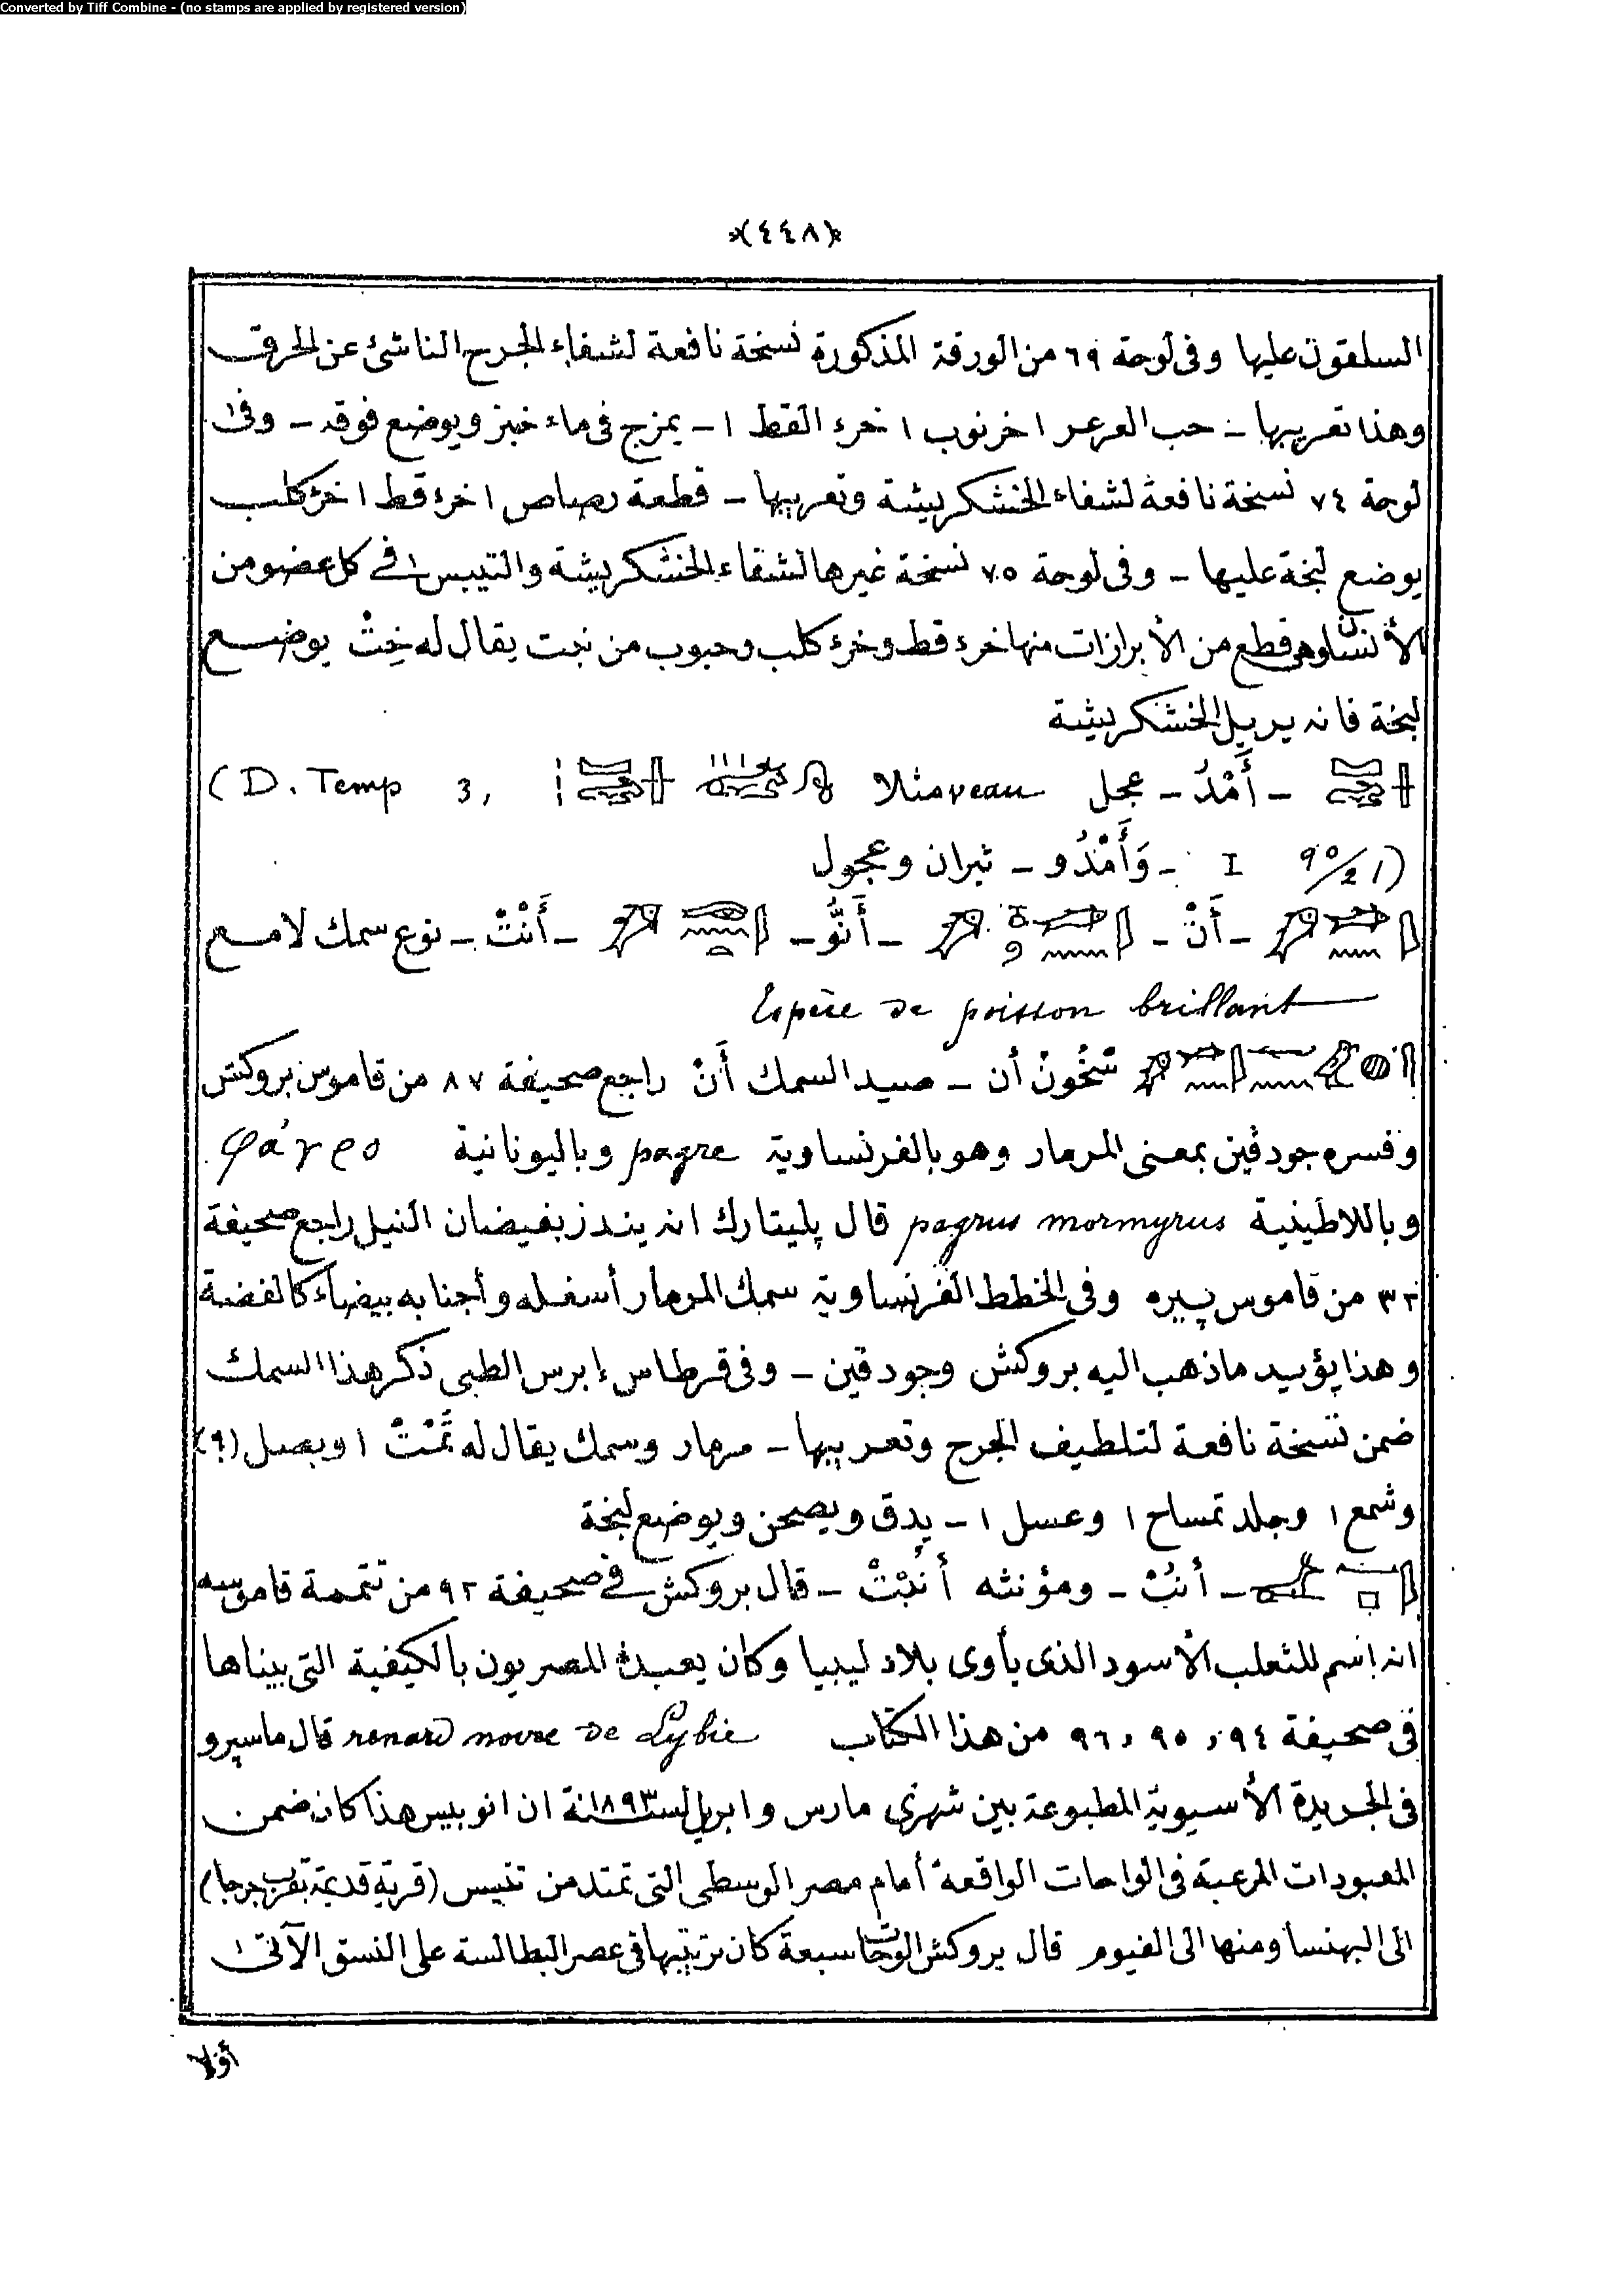 Converted by Tiff Combine - (no stamps are applied by registered version)
(٤٤٨)
السلقون عليها وفى لوحة ٦٩ من الورقة المذكورة نسخة نافعة لشفاء الجرح الناشئ عن الحرق
وهذا تعريبها - حب العرعر ١ خرنوب ١ خرء القط ١ - يمزج فى ماء خبز ويوضع فوقه - وفى
لوحة ٧٤ نسخة نافعة لشفاء الخشكريشة وتعريبها - قطعة رصاص ١ خرء قط ١ خرء كلب
يوضع لبخة عليها - وفى لوحة ٧٥ نسخة غيرها لشفاء الخشكريشة والتيبس فى كل عضو من
الأنسان وهى قطع من الأبرازات منها خرء قط وخرء كلب وحبوب من نبت يقال له خِتْ يوضع
لبخة فانه يزيل الخشكريشة
- أَمْدُ - عجل veau مثلا (D. Temp 3,
I 90/21) - وَأَمْدُو - ثيران وعجول
- أَنْ - - أَنُّو - - أَنْتْ - نوع سمك لامع
Espèce de poisson brillant
سْخُونْ أن - صيد السمك أَنْ راجع صحيفة ٨٧ من قاموس بروكش
وفسره جودقين بمعنى المرمار وهو بالفرنساوية pagre وباليونانية φάγρο
وباللاطينية pagrus mormyrus قال پليتارك انه ينذر بفيضان النيل راجع صحيفة
٣٢ من قاموس پيره وفى الخطط الفرنساوية سمك المرمار أسفله وأجنابه بيضاء كالفضة
وهذا يؤيد ماذهب اليه بروكش وجودقين - وفى قرطاس إبرس الطبى ذكر هذا السمك
ضمن نسخة نافعة لتلطيف الجرح وتعريبها - مرمار وسمك يقال له تَمْتْ ١ وبصل (؟)
وشمع ١ وجلد تمساح ١ وعسل ١ - يدق ويصحن ويوضع لبخة
- أنبُ - ومؤنثه أنُبْتْ - قال بروكش فى صحيفة ٩٢ من تتممة قاموسه
انه إسم للثعلب الأسود الذى يأوى بلاد ليبيا وكان يعبده المصريون بالكيفية التى بيناها
فى صحيفة ٩٤، ٩٥، ٩٦ من هذا الكتاب renard noire de Lybie قال ماسپرو
فى الجريدة الأسيوية المطبوعة بين شهرى مارس وابريل سنة ١٨٩٣ ان انوبيس هذا كان ضمن
المعبودات المرعية فى الواحات الواقعة أمام مصر الوسطى التى تمتد من تنيس (قرية قديمة بقرب جرجا)
الى البهنسا ومنها الى الفيوم قال بروكش الوحات سبعة كان ترتيبها فى عصر البطالسة على النسق الآتى
أوّلا